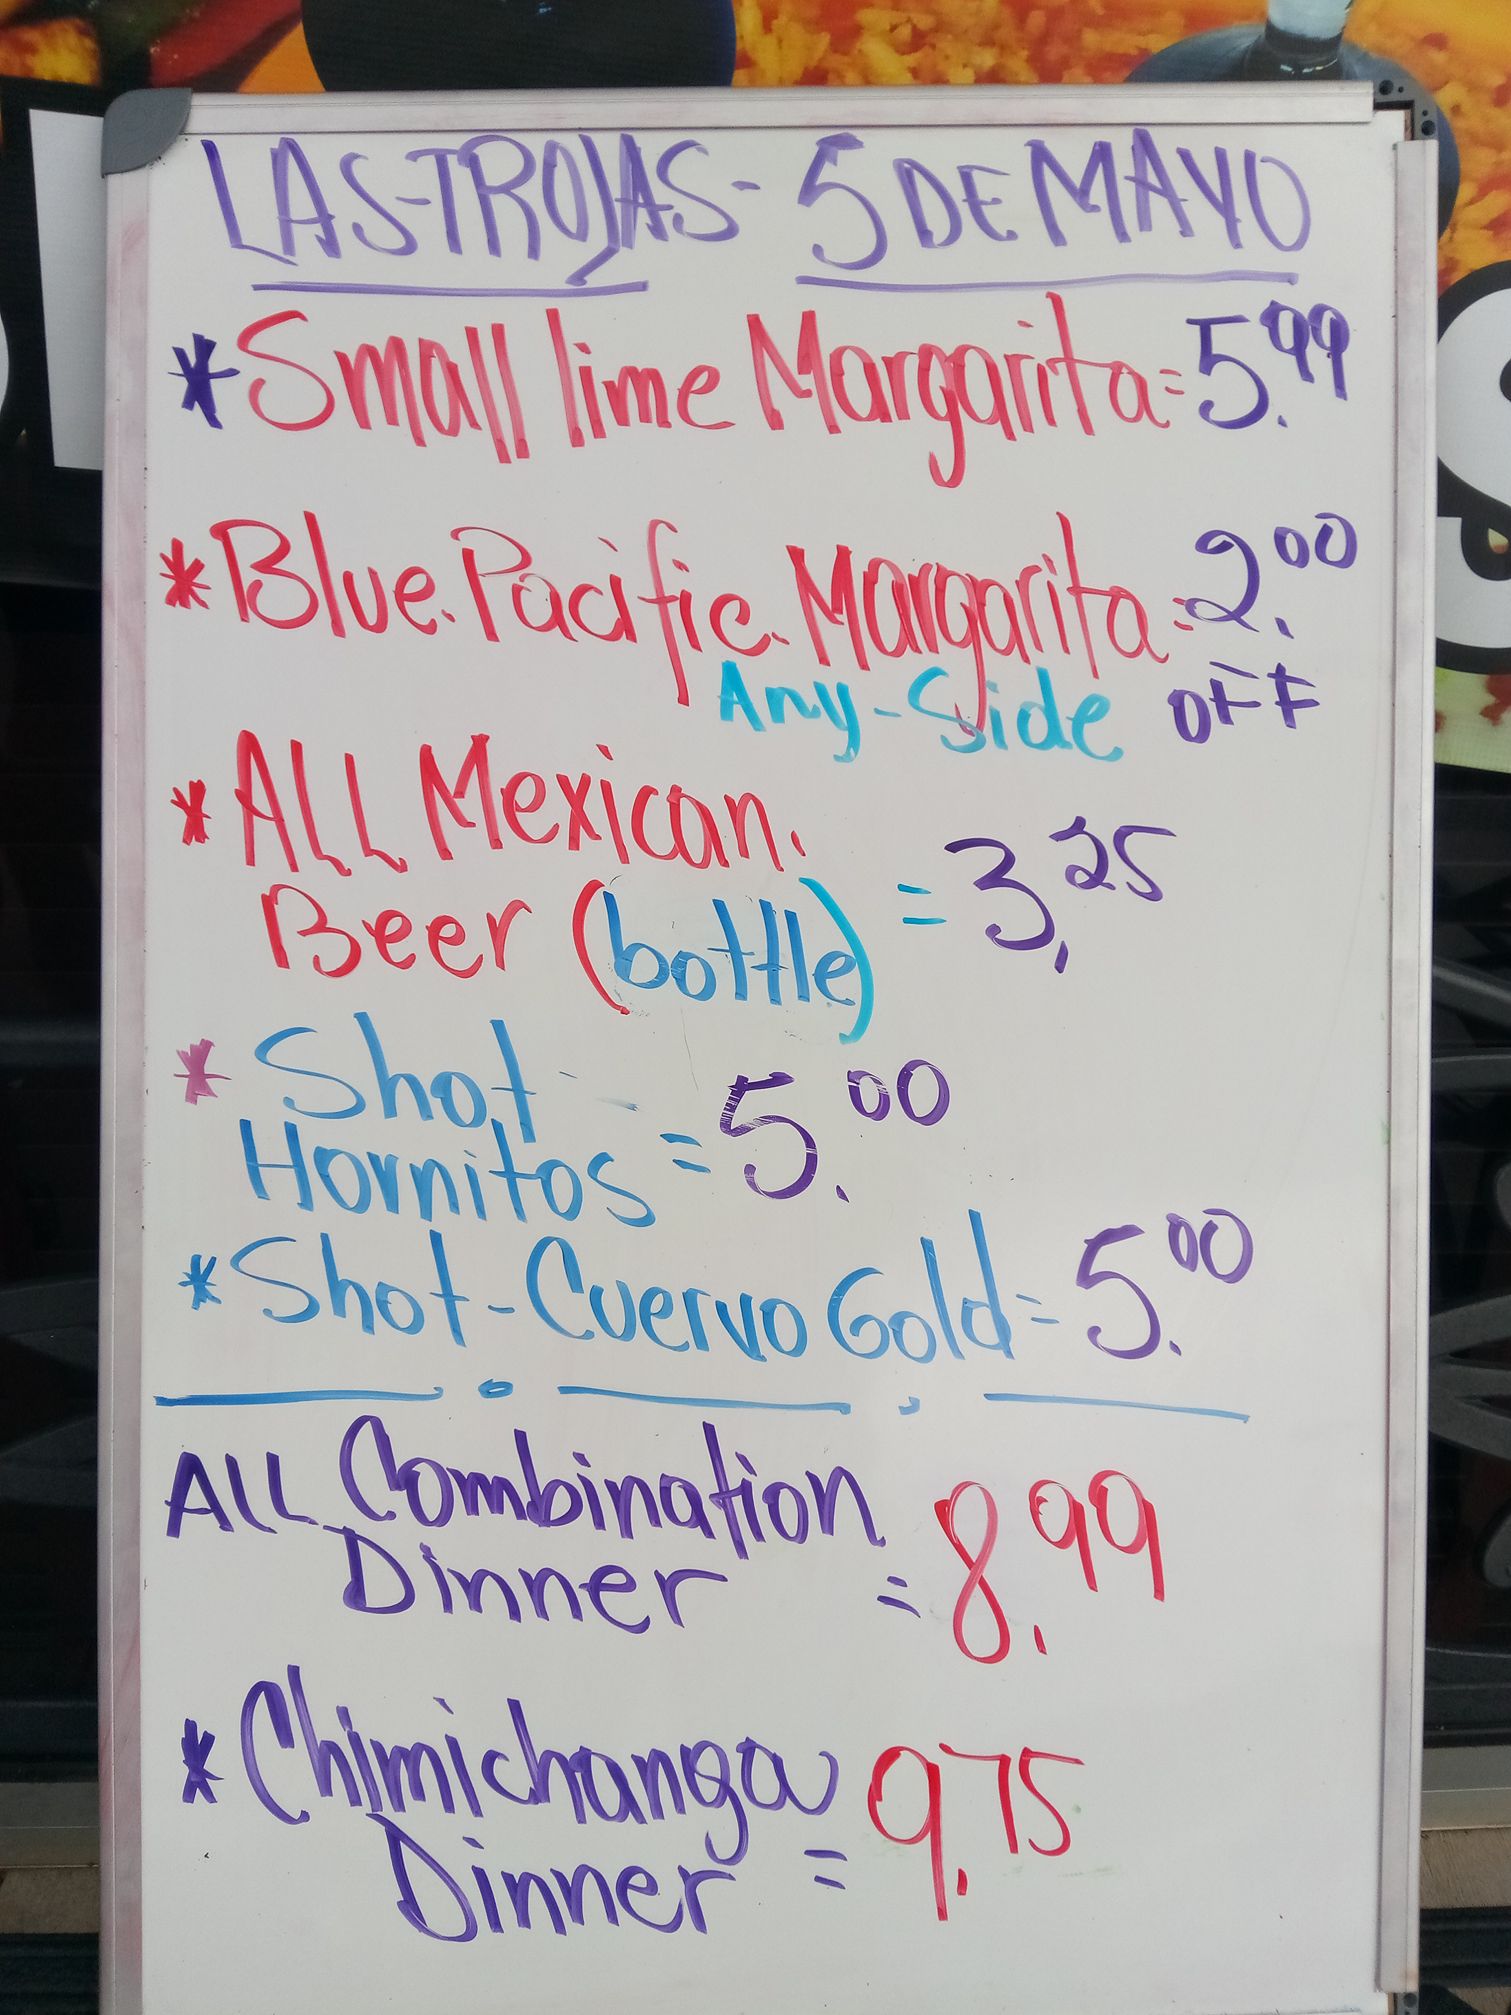 LAS-TROJAS- 5 DE MAYO
*Small lime Margarita=5.99
*Blue.Pacific.Margarita=2.00
Any-Side OFF
*ALL Mexican.
Beer (bottle) = 3.25
*Shot
Hornitos = 5.00
*Shot-Cuervo Gold=5.00
ALL Combination
Dinner = 8.99
*Chimichanga
Dinner = 9.75